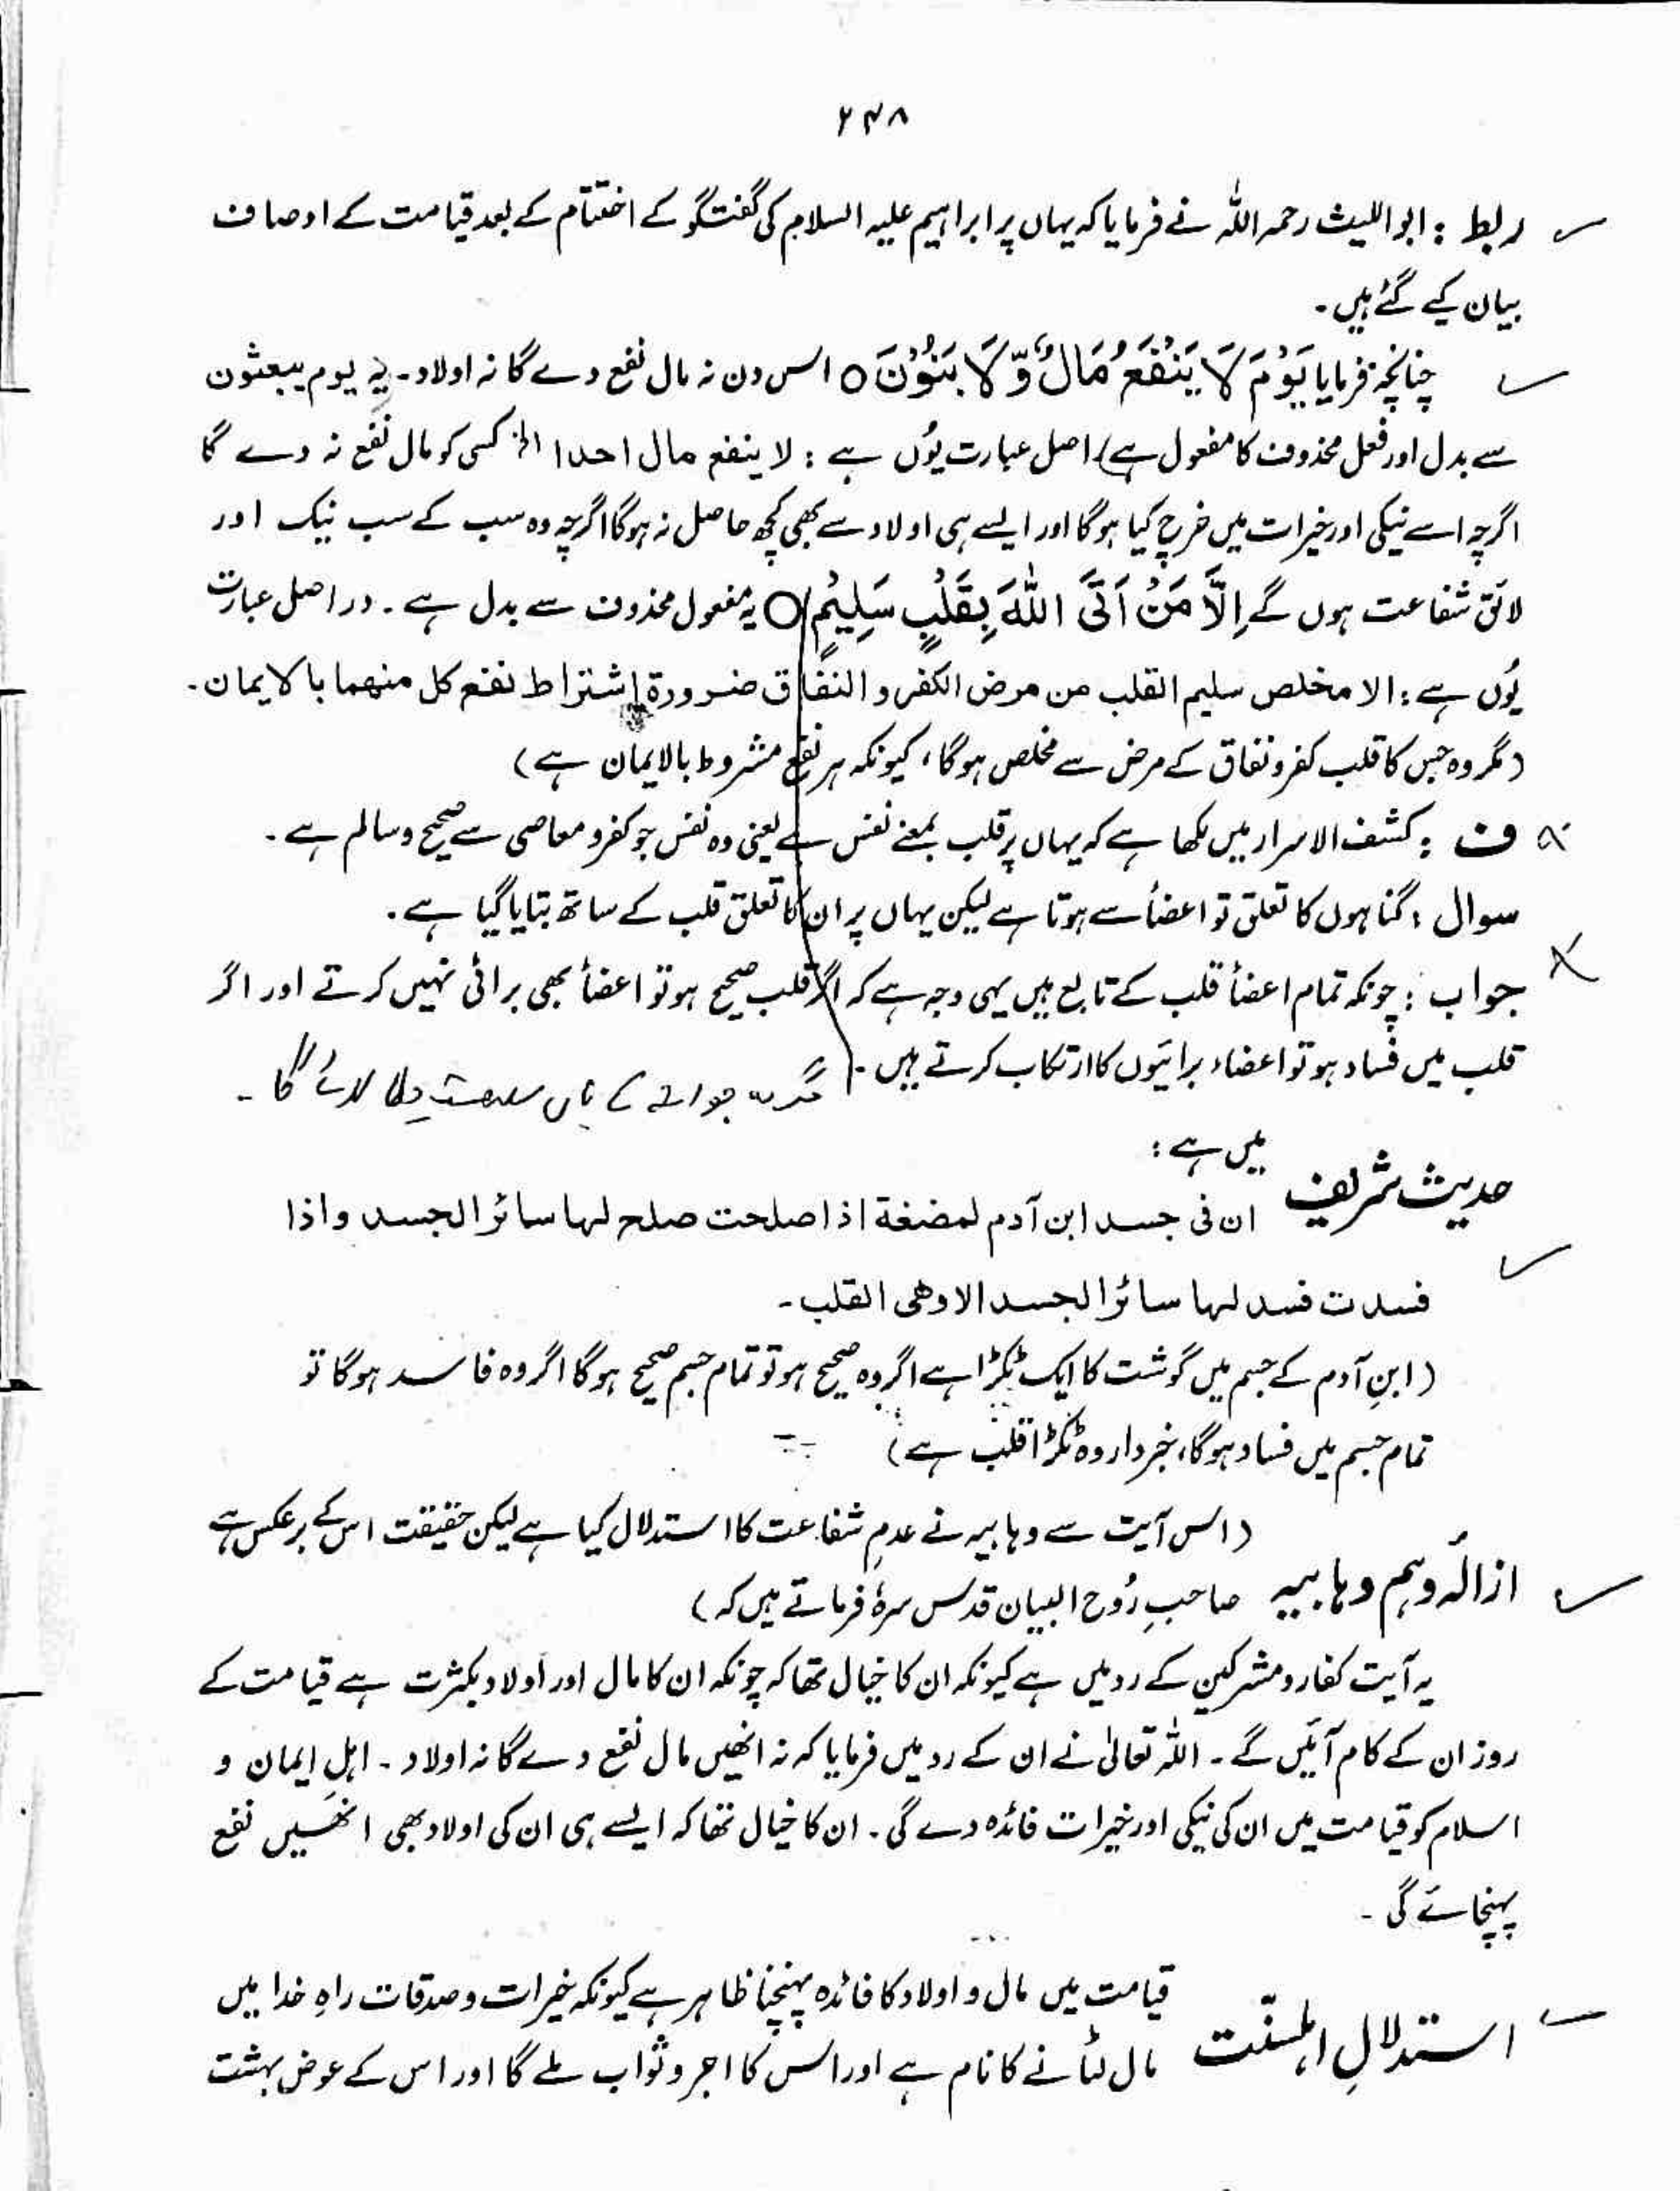 ۲۴۸
ربط : ابواللیث رحمہ اللہ نے فرمایا کہ یہاں پر ابراہیم علیہ السلام کی گفتگو کے اختتام کے بعد قیامت کے اوصاف
بیان کیے گئے ہیں۔
چنانچہ فرمایا یَوْمَ لَا یَنْفَعُ مَالٌ وَّلَا بَنُوْنَ ○ اس دن نہ مال نفع دے گا نہ اولاد۔ یہ یوم یبعثون
سے بدل اور فعل محذوف کا مفعول ہے) اصل عبارت یُوں ہے : لا ینفع مال احدا الخ کسی کو مال نفع نہ دے گا
اگرچہ اسے نیکی اور خیرات میں خرچ کیا ہوگا اور ایسے ہی اولاد سے بھی کچھ حاصل نہ ہوگا اگرچہ وہ سب کے سب نیک اور
لائقِ شفاعت ہوں گے اِلَّا مَنْ اَتَی اللّٰهَ بِقَلْبٍ سَلِیْمٍ ○ یہ مفعول محذوف سے بدل ہے ۔ دراصل عبارت
یُوں ہے : الا مخلص سلیم القلب من مرض الکفر و النفاق ضرورۃ اشتراط نفع کل منھما بالایمان۔
(مگر وہ جس کا قلب کفر و نفاق کے مرض سے مخلص ہوگا، کیونکہ ہر نفع مشروط بالایمان ہے)
ف : کشف الاسرار میں لکھا ہے کہ یہاں پر قلب بمعنے نفس ہے یعنی وہ نفس جو کفر و معاصی سے صحیح و سالم ہے ۔
سوال : گناہوں کا تعلق تو اعضأ سے ہوتا ہے لیکن یہاں پر ان کا تعلق قلب کے ساتھ بتایا گیا ہے ۔
جواب : چونکہ تمام اعضأ قلب کے تابع ہیں یہی وجہ ہے کہ اگر قلب صحیح ہو تو اعضأ بھی برائی نہیں کرتے اور اگر
قلب میں فساد ہو تو اعضاء برائیوں کا ارتکاب کرتے ہیں ۔
مگر وہ جو اللہ کے پاس سلامت دل لائے گا ۔
میں ہے :
حدیث شریف ان فی جسد ابن آدم لمضغة اذا صلحت صلح لھا سائر الجسد و اذا
فسدت فسد لھا سائر الجسد الا وھی القلب۔
(ابنِ آدم کے جسم میں گوشت کا ایک ٹکڑا ہے اگر وہ صحیح ہو تو تمام جسم صحیح ہوگا اگر وہ فاسد ہوگا تو
تمام جسم میں فساد ہوگا، خبردار وہ ٹکڑا قلب ہے)
(اس آیت سے وہابیہ نے عدمِ شفاعت کا استدلال کیا ہے لیکن حقیقت اس کے برعکس ہے
ازالۂ وہم وہابیہ صاحبِ رُوح البیان قدس سرہٗ فرماتے ہیں کہ)
یہ آیت کفار و مشرکین کے رد میں ہے کیونکہ ان کا خیال تھا کہ چونکہ ان کا مال اور اولاد بکثرت ہے قیامت کے
روز ان کے کام آئیں گے ۔ اللہ تعالیٰ نے ان کے رد میں فرمایا کہ نہ انھیں مال نفع دے گا نہ اولاد ۔ اہلِ ایمان و
اسلام کو قیامت میں ان کی نیکی اور خیرات فائدہ دے گی ۔ ان کا خیال تھا کہ ایسے ہی ان کی اولاد بھی انھیں نفع
پہنچائے گی ۔
قیامت میں مال و اولاد کا فائدہ پہنچنا ظاہر ہے کیونکہ خیرات و صدقات راہِ خدا میں
استدلالِ اہلسنّت مال لٹانے کا نام ہے اور اس کا اجر و ثواب ملے گا اور اس کے عوض بہشت